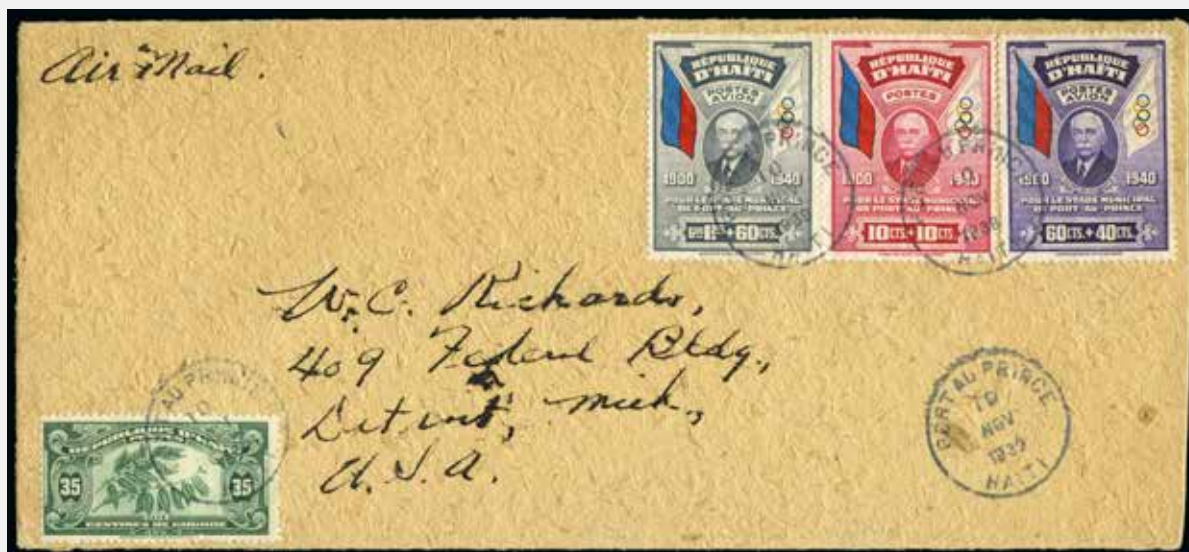 Air Mail.
RÉPUBLIQUE
D'HAÏTI
POSTES
AVION
1900 1940
POUR LE STADE MUNICIPAL
DE PORT-AU-PRINCE
+ 60 CTS.
RÉPUBLIQUE
D'HAÏTI
POSTES
1900 1940
POUR LE STADE MUNICIPAL
DE PORT-AU-PRINCE
10 CTS. + 10 CTS.
RÉPUBLIQUE
D'HAÏTI
POSTES
AVION
1900 1940
POUR LE STADE MUNICIPAL
DE PORT-AU-PRINCE
60 CTS. + 40 CTS.
PRINCE
10
HAITI
PRINCE
NOV
HAITI
W.C. Richards,
409 Federal Bldg.,
Detroit, Mich.,
U.S.A.
PORT AU PRINCE
10
NOV
1939
HAITI
AU PRINCE
10
35 35
CENTIMES DE GOURDE